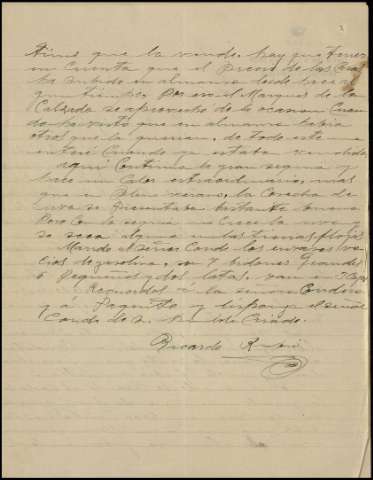 tiene que la vende. hay que tener
en Cuenta que el precio de las
ha subido en almansa desde hace
que tiempo. Por eso el Marques de la
Calzada se aprovecho de la ocasion Cuan
do ha visto que en almansa habia
otros que la querian, de todo esto me
entere Cuando ya estaba vendida.
aqui Continua la gran sequia y
hace un Calor extraordinario, mas
que en pleno verano, la Cosecha de
uva se presentaba bastante buena
Pero Con la sequia no Crece la uva y
se seca alguna en las tierras flojas
Mando al señor Conde los envases va
cios de gasolina, son 7 bidones grandes
6 pequeños y dos latas, van en
Recuerdos á la señora Condesa
y á Paquito y disponga el señor
Conde de su Criado.
Ricardo